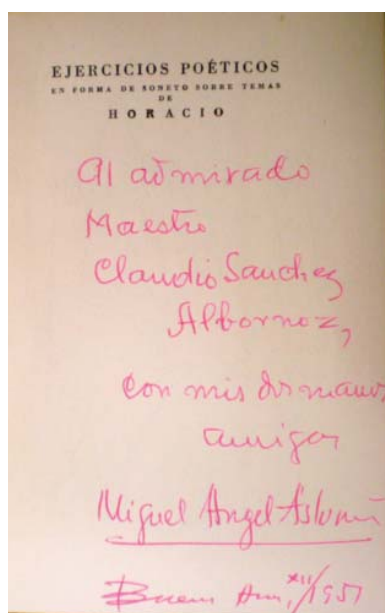 EJERCICIOS POÉTICOS
EN FORMA DE SONETO SOBRE TEMAS
DE
HORACIO
Al admirado
Maestro
Claudio Sanchez
Albornoz,
con mis dos manos
amigas
Miguel Angel Asturias
Buenos Aires, XII/1951